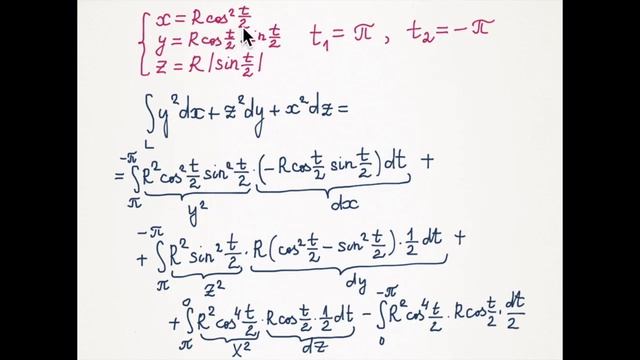 x = R cos² t/2
y = R cos t/2 sin t/2    t₁ = π , t₂ = -π
z = R |sin t/2|
∫_L y²dx + z²dy + x²dz =
= ∫_π^{-π} R² cos² t/2 sin² t/2 · (-R cos t/2 sin t/2) dt +
y²    dx
+ ∫_π^{-π} R² sin² t/2 · R (cos² t/2 - sin² t/2) · 1/2 dt +
z²    dy
+ ∫_π^0 R² cos⁴ t/2 · R cos t/2 · 1/2 dt - ∫_0^{-π} R² cos⁴ t/2 · R cos t/2 · dt/2
x²    dz